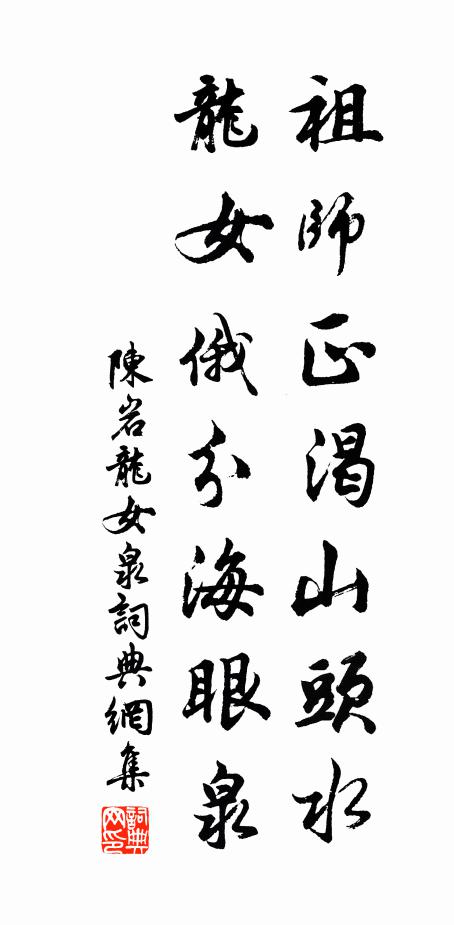 祖師正渴山頭水
龍女俄分海眼泉
陳岩龍女泉詞典網集
詞典網印